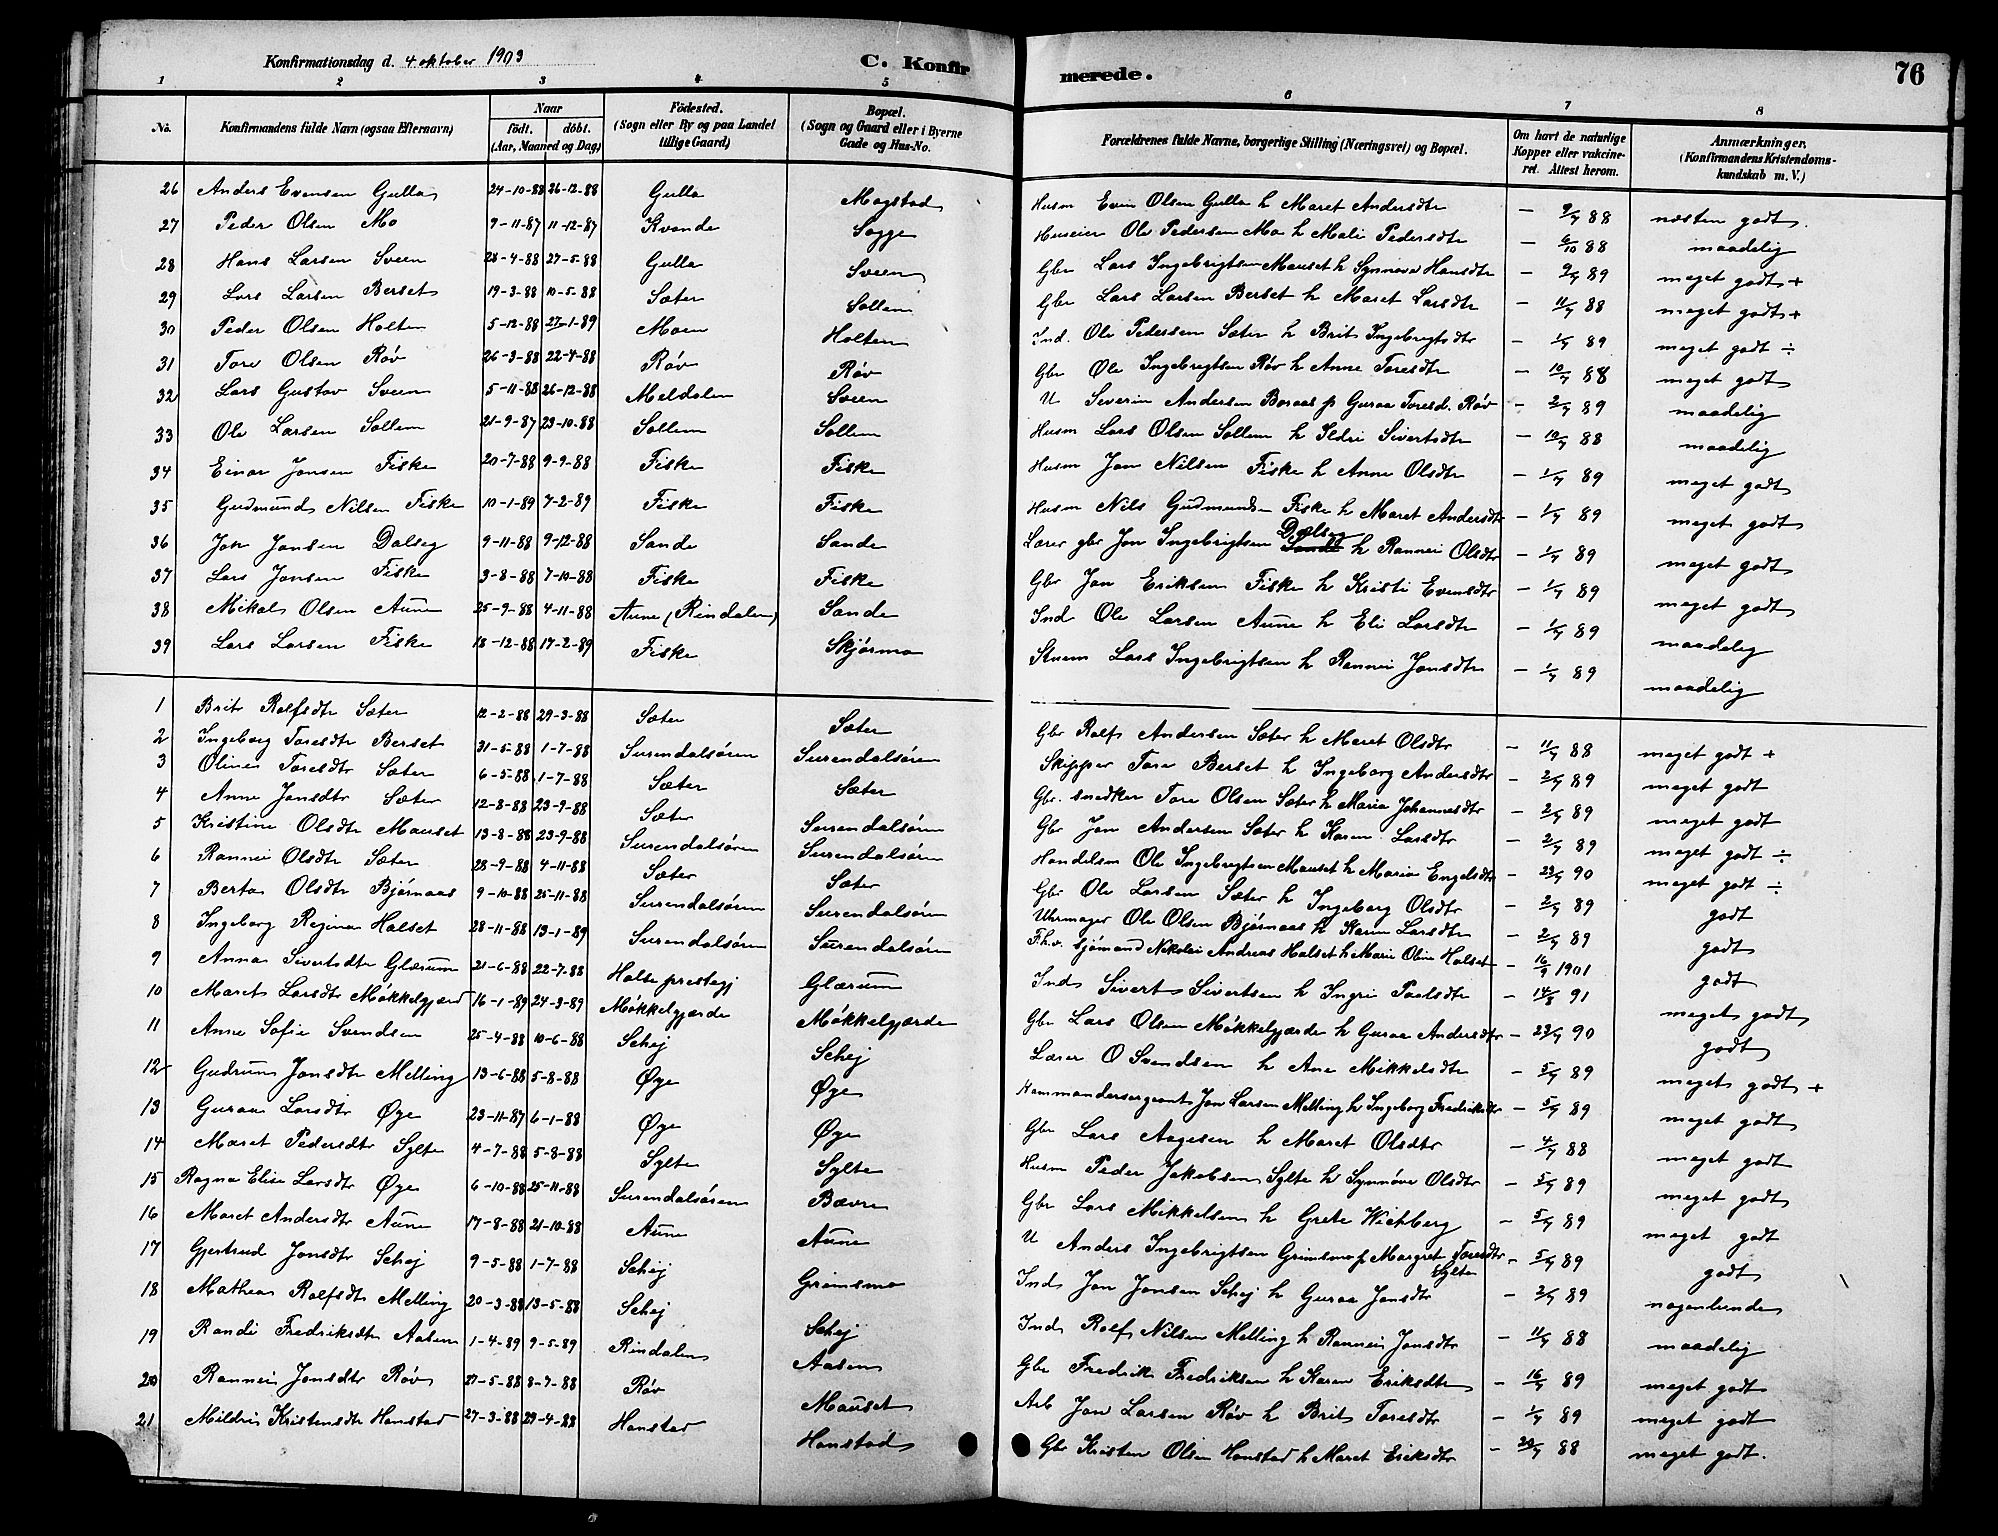 Konfirmationsdag d. 4 oktober 1903 C. Konfirmerede. 76
1 2 3 4 5 6 7 8
No. Konfirmandens fulde Navn (ogsaa Efternavn) Naar født. døbt. (Aar, Maaned og Dag) Fødested. (Sogn eller By og paa Landet tillige Gaard) Bopæl. (Sogn og Gaard eller i Byerne Gade og Hus-No. Forældrenes fulde Navne, borgerlige Stilling (Næringsvei) og Bopæl. Om havt de naturlige Kopper eller vakcineret. Attest herom. Anmærkninger. (Konfirmandens Kristendomskundskab m. V.)
26 Anders Evensen Gulla 24-10-88 26-12-88 Gulla Mogstad Husm Even Olsen Gulla h Maret Andersdtr - 9/7 88 næsten godt.
27 Peder Olsen Mo 9-11-87 11-12-87 Kvande Sogge Huseier Ole Pedersen Mo h Mali Pedersdtr - 6/10 88 maadelig
28 Hans Larsen Sveen 28-4-88 27-5-88 Gulla Sveen Gbr Lars Ingebrigtsen Mauset h Synnøve Hansdtr - 2/7 89 meget godt +
29 Lars Larsen Berset 19-3-88 10-5-88 Sæter Sollem Gbr Lars Larsen Berset h Maret Larsdtr - 11/7 88 meget godt +
30 Peder Olsen Holten 5-12-88 27-1-89 Moen Holten Ind. Ole Pedersen Sæter h Brit Ingebrigtsdtr - 1/7 89 meget godt ÷
31 Tore Olsen Røv 26-3-88 22-4-88 Røv Røv Gbr Ole Ingebrigtsen Røv h Anne Toresdtr - 10/7 88 meget godt
32 Lars Gustav Sveen 5-11-88 26-12-88 Meldalen Sveen U Severin Andersen Boraas p Guraa Toresd. Røv - 2/7 89 maadelig
33 Ole Larsen Sollem 21-9-87 23-10-88 Sollem Sollem Husm Lars Olsen Sollem h Ildri Sivertsdtr - 10/7 88 maadelig
34 Einar Jonsen Fiske 20-7-88 9-9-88 Fiske Fiske Husm Jon Nilsen Fiske h Anne Olsdtr - 1/7 89 meget godt
35 Gudmund Nilsen Fiske 10-1-89 7-2-89 Fiske Fiske Husm Nils Gudmunds Fiske h Maret Andersdtr - 1/7 89 meget godt
36 Jon Jonsen Dalseg 9-11-88 9-12-88 Sande Sande Lærer gbr Jon Ingebrigtsen Sande Dalseg h Rannei Olsdtr - 1/7 89 meget godt
37 Lars Jonsen Fiske 3-8-88 7-10-88 Fiske Fiske Gbr Jon Eriksen Fiske h Kristi Evensdtr - 1/7 89 meget godt
38 Mikal Olsen Aune 25-9-88 4-11-88 Aune (Rindalen) Sande Ind Ole Larsen Aune h Eli Larsdtr - 1/7 89 maadelig
39 Lars Larsen Fiske 18-12-88 17-2-89 Fiske Skjørmo Stuem Lars Ingebrigtsen h Rannei Jonsdtr - 1/7 89 maadelig
1 Brit Rolfsdtr Sæter 12-2-88 29-3-88 Sæter Sæter Gbr Rolf Andersen Sæter h Maret Olsdtr - 11/7 88 meget godt +
2 Ingeborg Toresdtr Berset 31-5-88 1-7-88 Surendalsøren Surendalsøren Skipper Tore Berset h Ingeborg Andersdtr - 2/7 89 meget godt
3 Oline Toresdtr Sæter 6-5-88 1-7-88 Sæter Sæter Gbr. snedker Tore Olsen Sæter h Maria Johannesdtr - 2/7 89 meget godt
4 Anne Jonsdtr Sæter 12-8-88 23-9-88 Sæter Surendalsøren Gbr Jon Andersen Sæter h Karen Larsdtr - 2/7 89 meget godt ÷
5 Kristine Olsdtr Mauset 13-8-88 23-9-88 Surendalsøren Surendalsøren Handelsm Ole Ingebrigtsen Mauset h Maria Engelsdtr - 23/7 90 meget godt ÷
6 Rannei Olsdtr Sæter 28-9-88 4-11-88 Sæter Sæter Gbr Ole Larsen Sæter h Ingeborg Olsdtr - 2/7 89 godt
7 Berta Olsdtr Bjørnaas 9-10-88 25-11-88 Surendalsøren Surendalsøren Uhrmager Ole Olsen Bjørnaas h Karen Larsdtr - 2/7 89 godt
8 Ingeborg Regina Halset 28-11-88 13-1-89 Surendalsøren Surendalsøren F.h.v. sjømand Nikolai Andreas Halset h Marie Oline Halset - 16/9 1901 godt
9 Anna Sivertsdtr Glærum 21-6-88 22-7-88 Halse prestegj Glærum Ind Sivert Sivertsen h Ingri Paalsdtr - 14/8 91 meget godt
10 Maret Larsdtr Møkkelgjærd 16-1-89 24-3-89 Møkkelgjærde Møkkelgjærde Gbr Lars Olsen Møkkelgjærde h Guraa Andersdtr - 23/7 90 godt
11 Anne Sofie Svendsen 25-4-88 10-6-88 Schej Schej Lærer O Svendsen h Ane Mikkelsdtr - 5/7 89 meget godt +
12 Gudrun Jonsdtr Melling 13-6-88 5-8-88 Øye Øye Kommandersergeant Jon Larsen Melling h Ingeborg Fredriksdtr - 5/7 89 meget godt
13 Guraa Larsdtr Øye 23-11-87 6-1-88 Øye Øye Gbr Lars Aagesen h Maret Olsdtr - 4/7 88 meget godt
14 Maret Pedersdtr Sylte 4-7-88 5-8-88 Sylte Sylte Husm Peder Jakobsen Sylte h Synnøve Olsdtr - 5/7 89 meget godt
15 Ragna Elise Larsdtr Øye 6-10-88 25-11-88 Surendalsøren Bævre Gbr Lars Mikkelsen h Grete Wichberg - 5/7 89 meget godt
16 Maret Andersdtr Aune 17-8-88 21-10-88 Aune Aune U Anders Ingebrigtsen Grimsmo p Margret Toresdtr Sylte - 5/7 89 godt
17 Gjertrud Jonsdtr Schej 9-5-88 1-7-88 Schej Grimsmo Ind Jon Jonsen Schej h Guraa Jonsdtr - 2/7 89 nogenlunde
18 Mathea Rolfsdtr Melling 20-3-88 13-5-88 Schej Schej Ind Rolf Nilsen Melling h Rannei Jonsdtr - 11/7 88 maadelig
19 Randi Fredriksdtr Aasen 1-4-89 9-5-89 Rindalen Aasen Gbr Fredrik Fredriksen h Karen Eriksdtr - 16/7 89 meget godt
20 Rannei Jonsdtr Røv 27-5-88 8-7-88 Røv Mauset Arb Jon Larsen Røv h Brit Toresdtr - 1/7 89 meget godt
21 Mildri Kristensdtr Honstad 27-3-88 29-4-88 Honstad Honstad Gbr Kristen Olsen Honstad h Maret Eriksdtr - 20/7 88 meget godt.